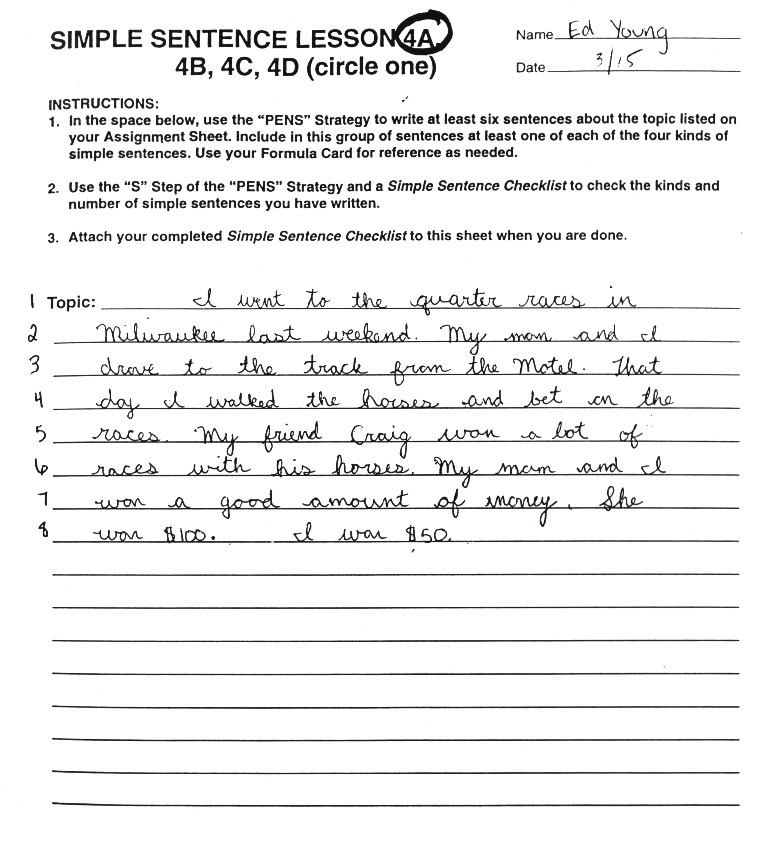 SIMPLE SENTENCE LESSON 4A,
4B, 4C, 4D (circle one)
Name Ed Young
Date 3/15
INSTRUCTIONS:
1. In the space below, use the “PENS” Strategy to write at least six sentences about the topic listed on
your Assignment Sheet. Include in this group of sentences at least one of each of the four kinds of
simple sentences. Use your Formula Card for reference as needed.
2. Use the “S” Step of the “PENS” Strategy and a Simple Sentence Checklist to check the kinds and
number of simple sentences you have written.
3. Attach your completed Simple Sentence Checklist to this sheet when you are done.
1 Topic: I went to the quarter races in
2 Milwaukee last weekend. My mom and I
3 drove to the track from the Motel. That
4 day I walked the horses and bet on the
5 races. My friend Craig won a lot of
6 races with his horses. My mom and I
7 won a good amount of money. She
8 won $100. I won $50.